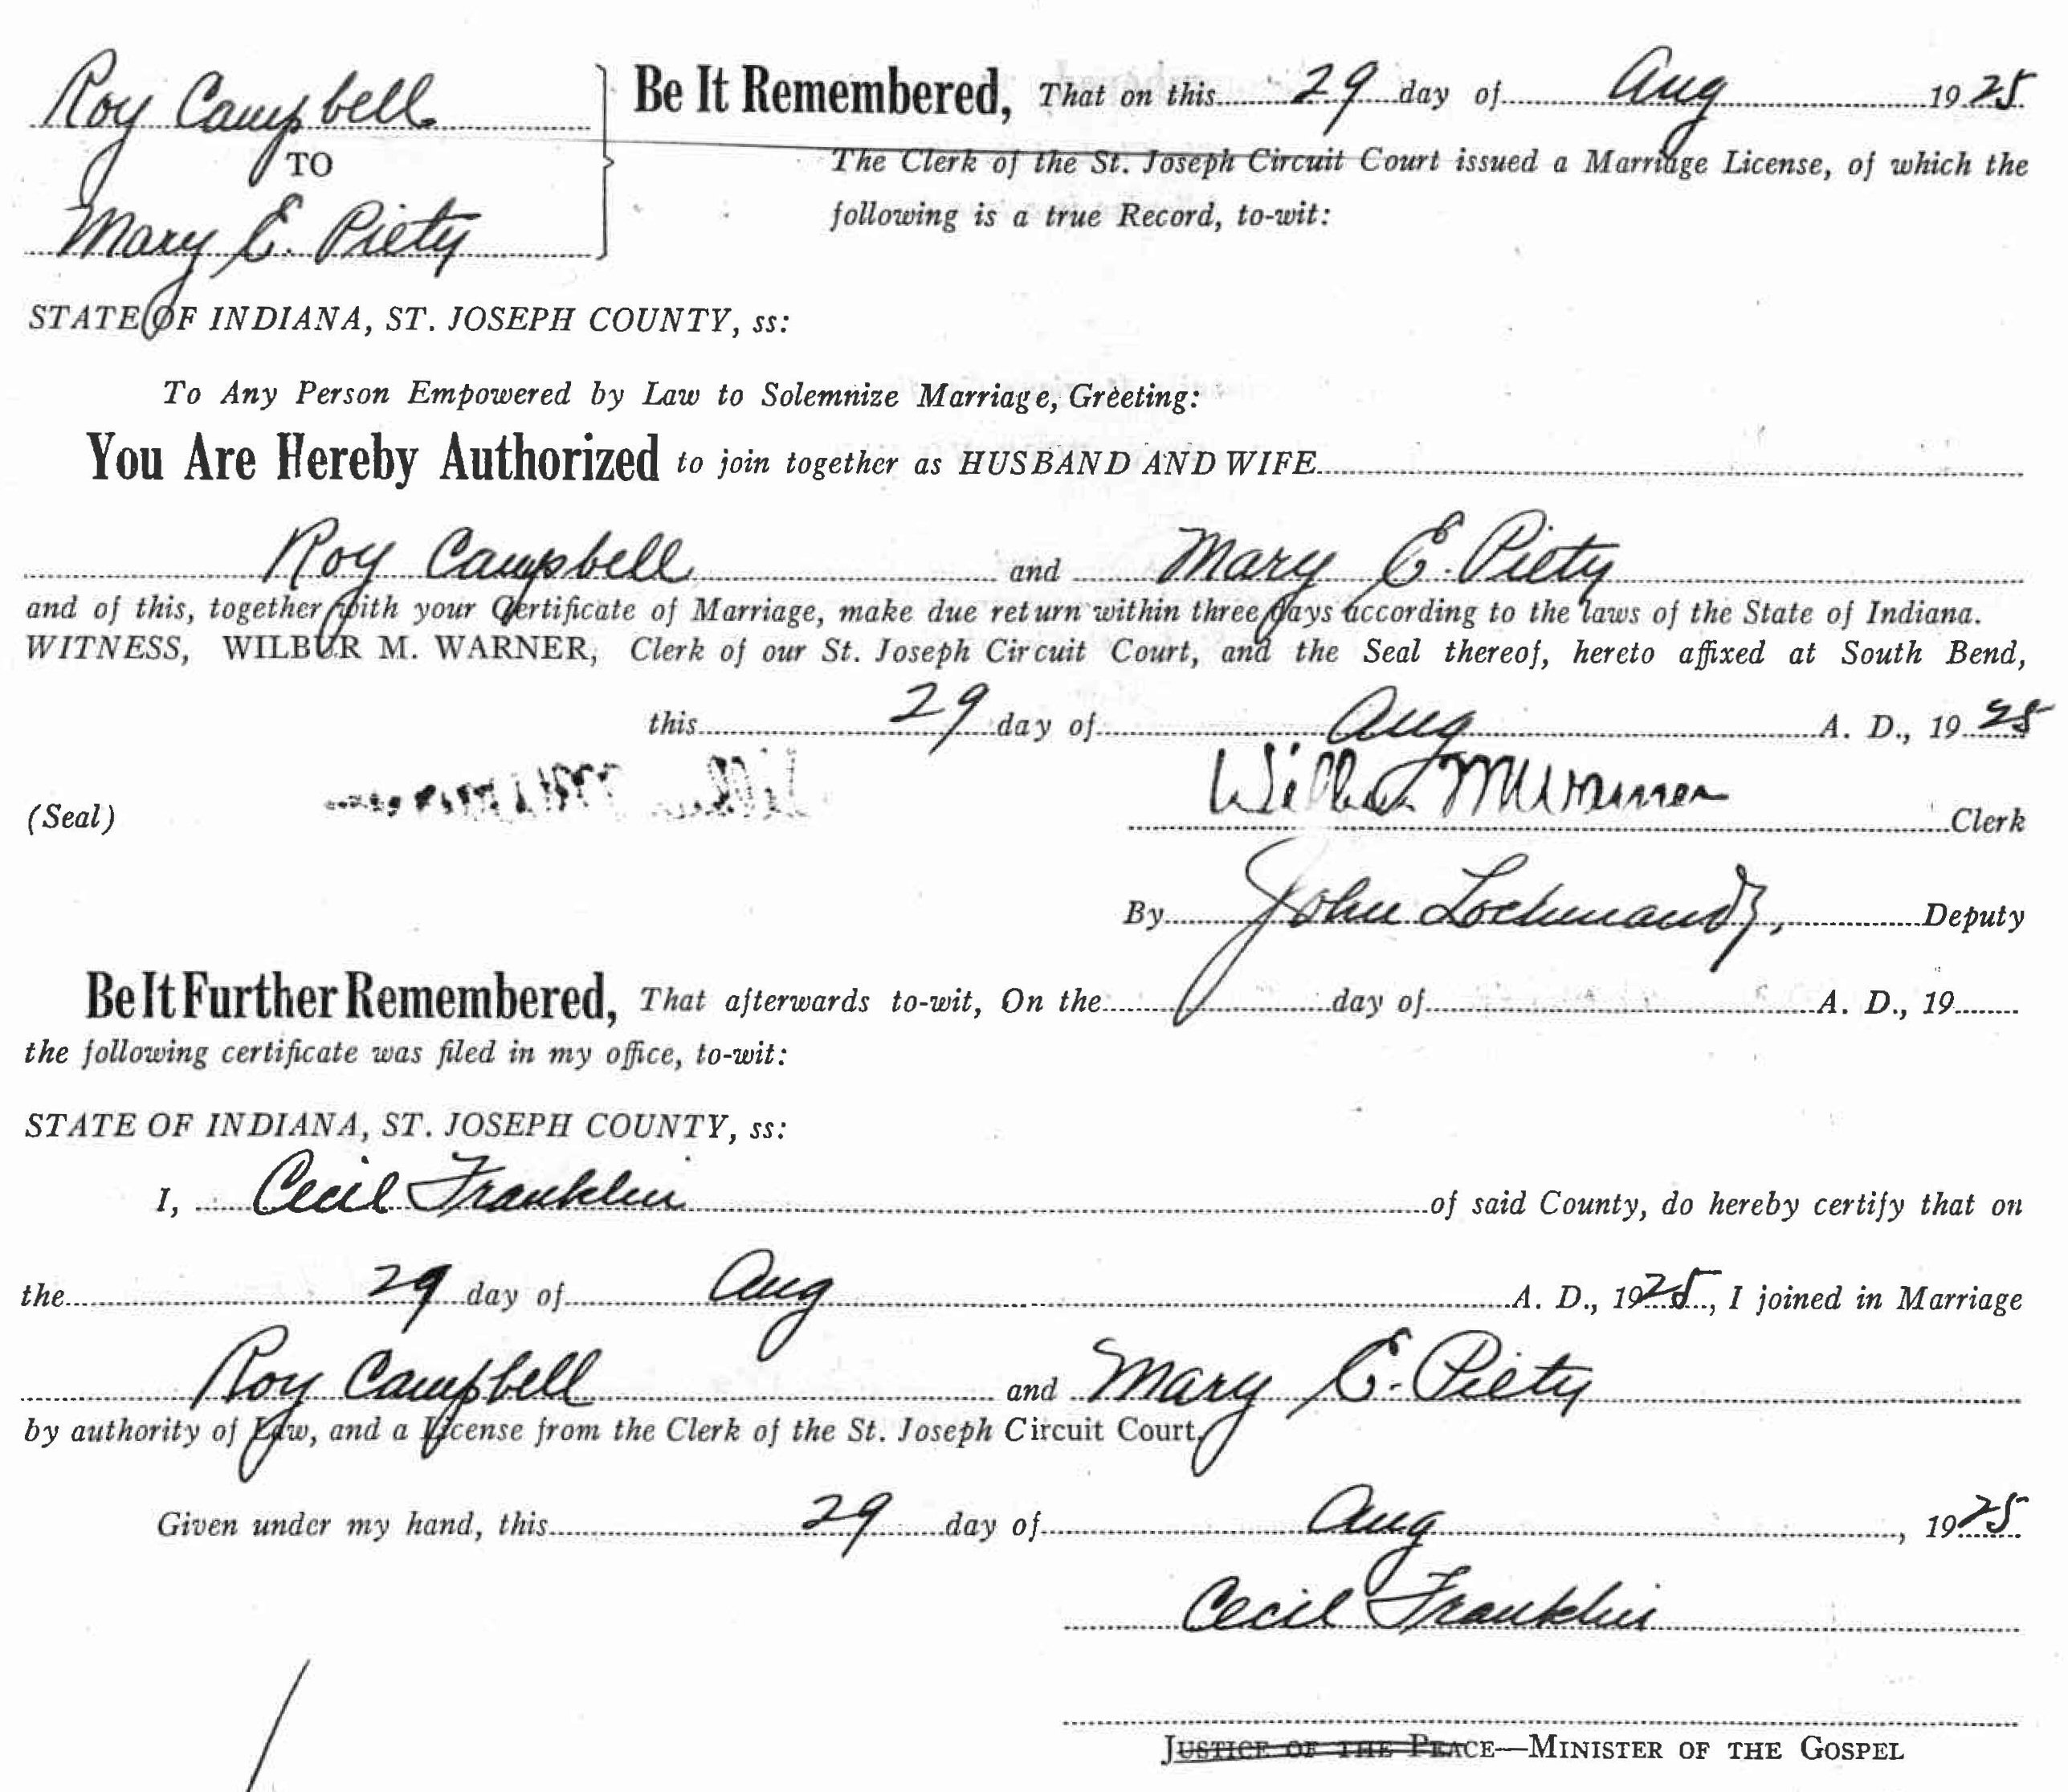 Roy Campbell
TO
Mary E. Piety
Be It Remembered, That on this 29 day of Aug 1925
The Clerk of the St. Joseph Circuit Court issued a Marriage License, of which the
following is a true Record, to-wit:
STATE OF INDIANA, ST. JOSEPH COUNTY, ss:
To Any Person Empowered by Law to Solemnize Marriage, Greeting:
You Are Hereby Authorized to join together as HUSBAND AND WIFE
Roy Campbell and Mary E. Piety
and of this, together with your Certificate of Marriage, make due return within three days according to the laws of the State of Indiana.
WITNESS, WILBUR M. WARNER, Clerk of our St. Joseph Circuit Court, and the Seal thereof, hereto affixed at South Bend,
this 29 day of Aug A. D., 1925
(Seal) Wilbur M Warner Clerk
By John Lochmandy, Deputy
Be It Further Remembered, That afterwards to-wit, On the day of A. D., 19
the following certificate was filed in my office, to-wit:
STATE OF INDIANA, ST. JOSEPH COUNTY, ss:
I, Cecil Franklin of said County, do hereby certify that on
the 29 day of Aug A. D., 1925, I joined in Marriage
Roy Campbell and Mary E. Piety
by authority of Law, and a License from the Clerk of the St. Joseph Circuit Court.
Given under my hand, this 29 day of Aug, 1925
Cecil Franklin
JUSTICE OF THE PEACE—MINISTER OF THE GOSPEL